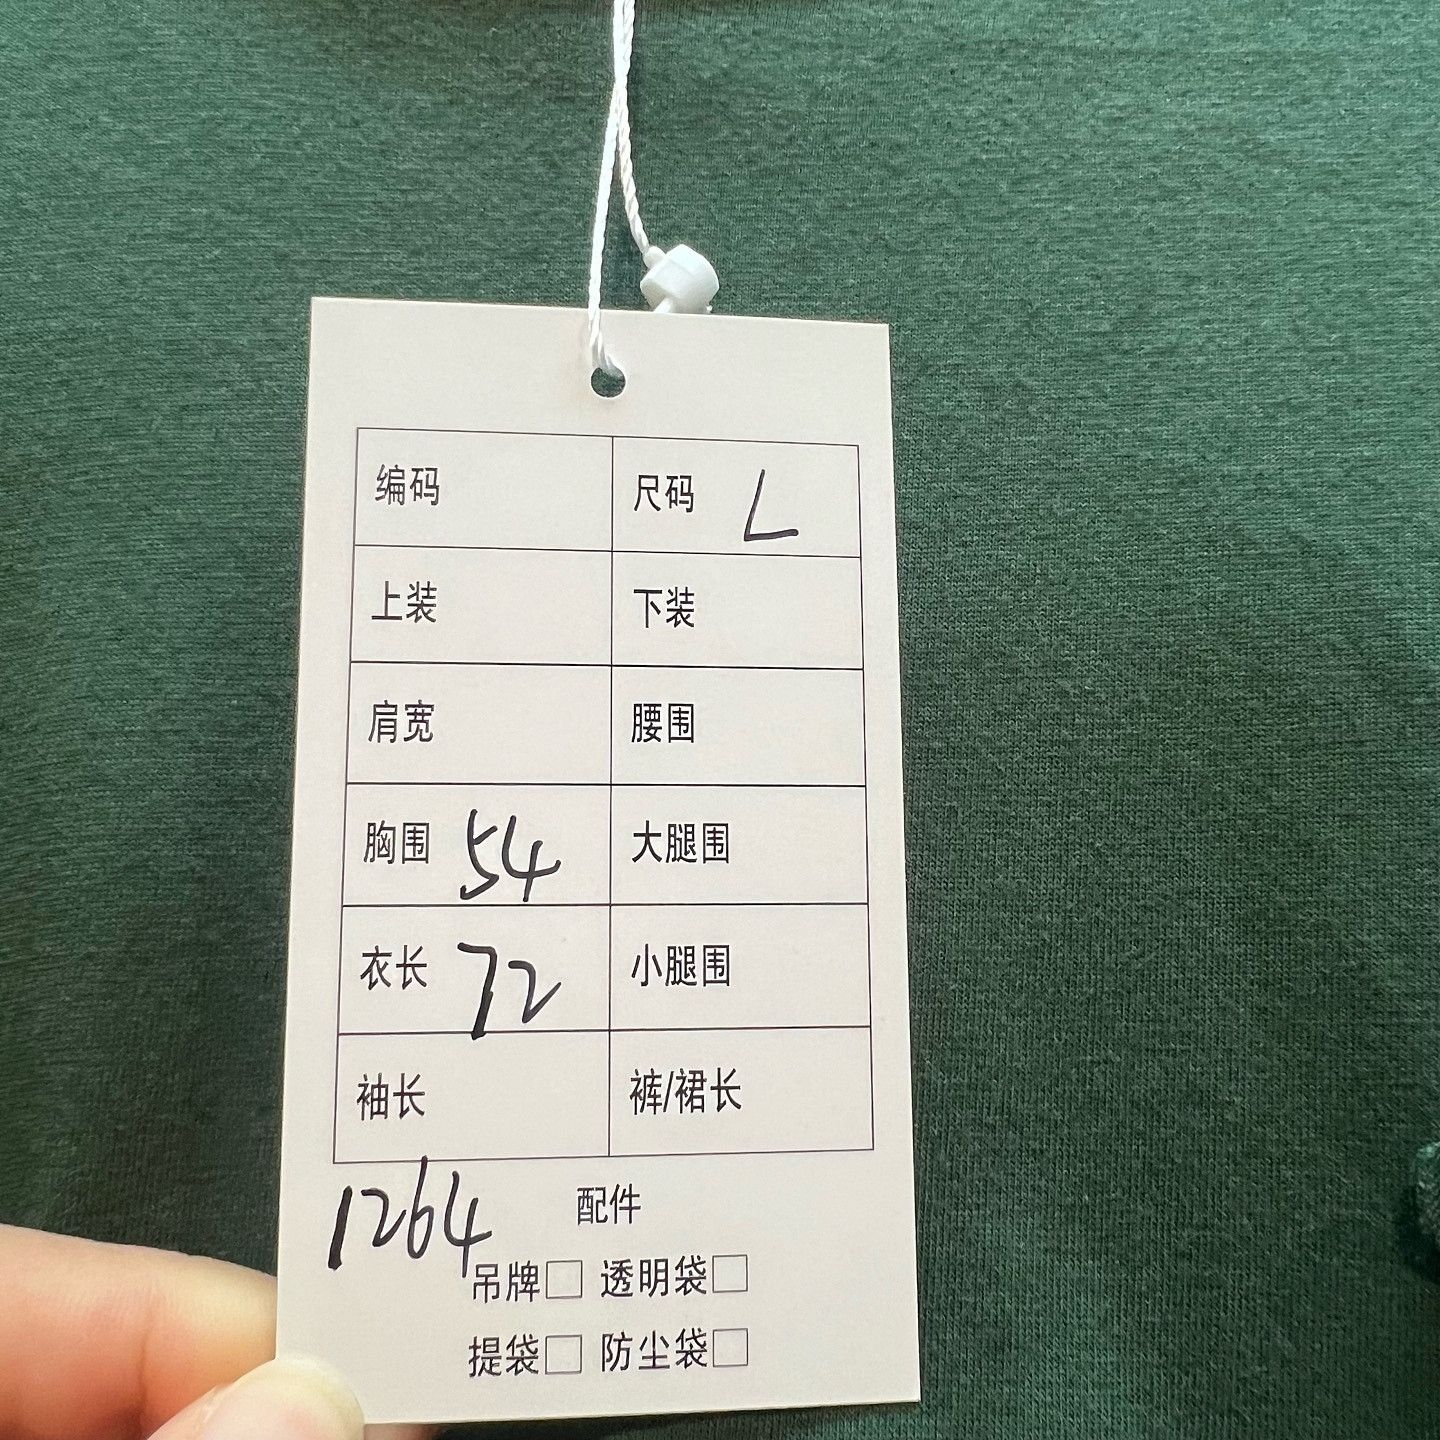 编码 尺码 L
上装 下装
肩宽 腰围
胸围 54 大腿围
衣长 72 小腿围
袖长 裤/裙长
1264 配件
吊牌□ 透明袋□
提袋□ 防尘袋□